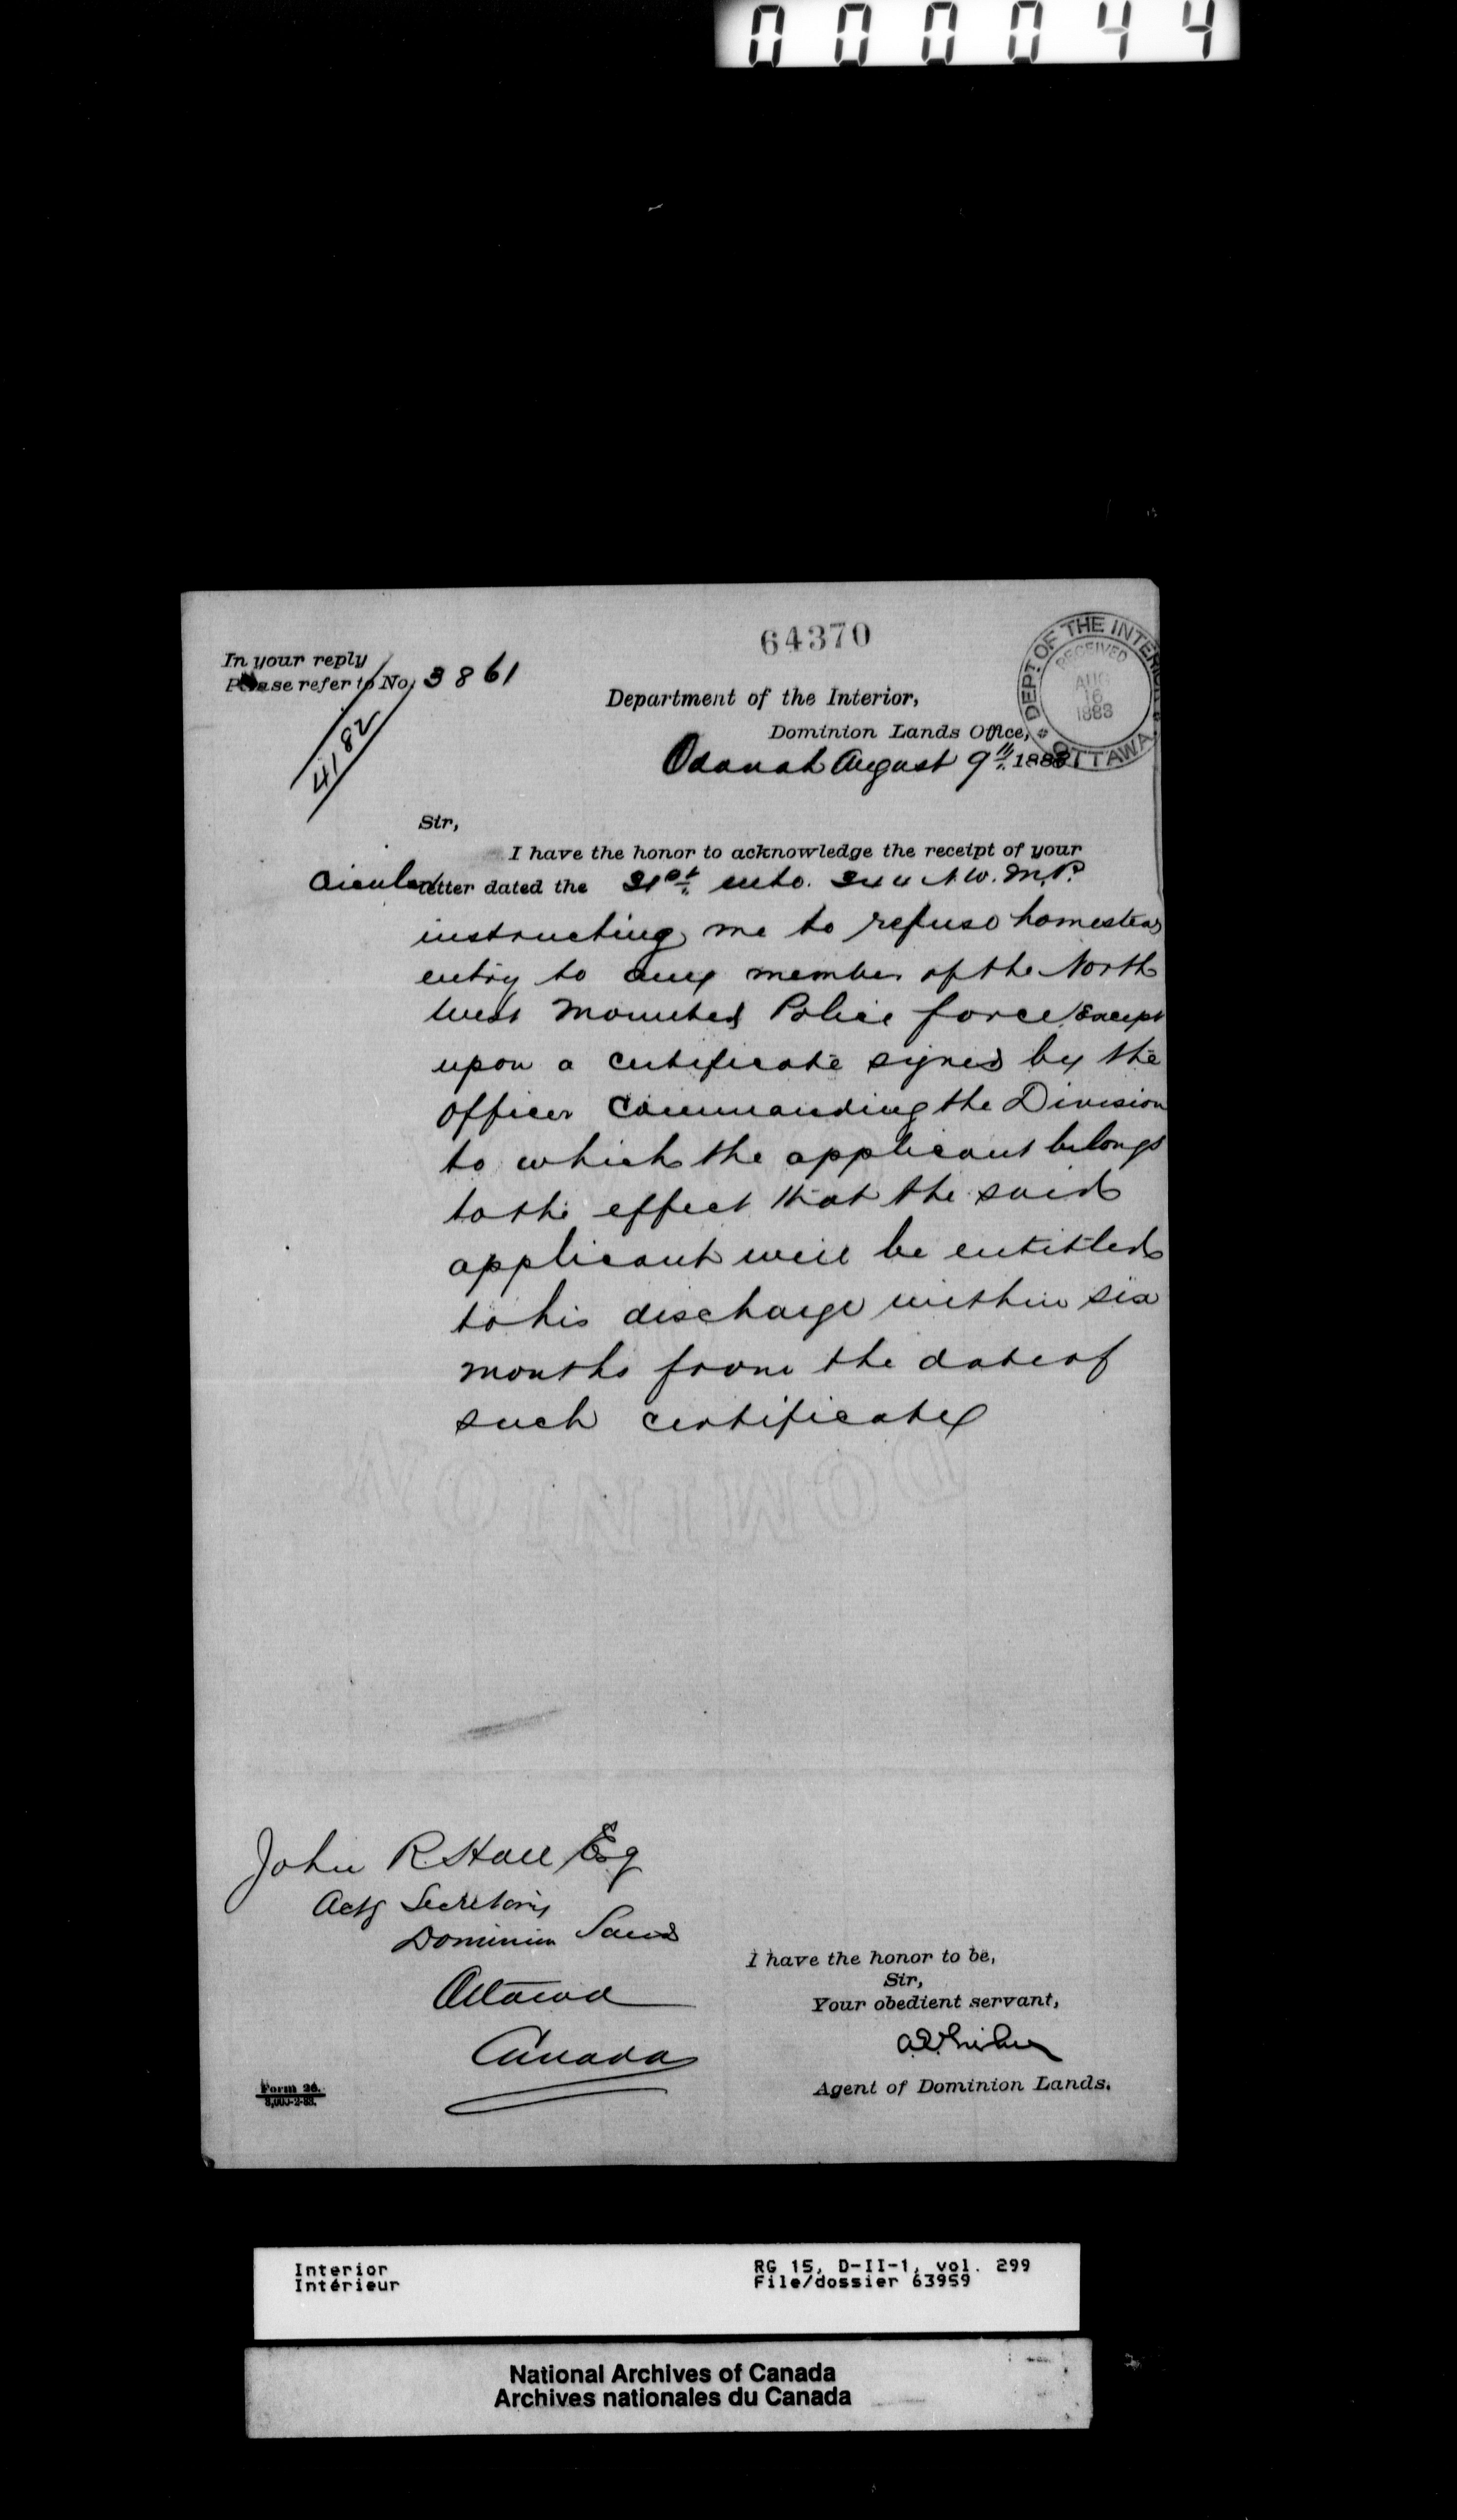 000044
64370
In your reply
Please refer to No. 3861
4182
DEPT. OF THE INTERIOR
RECEIVED
AUG
16
1883
OTTAWA
Department of the Interior,
Dominion Lands Office,
Odanah August 9th 1883
Sir,
I have the honor to acknowledge the receipt of your
Circular letter dated the 31st N.W.M.P.
instructing me to refuse homestead
entry to any member of the North
West Mounted Police force Except
upon a certificate signed by the
officer Commanding the Division
to which the applicant belongs
to the effect that the said
applicant will be entitled
to his discharge within six
months from the date of
such certificate
DOMINION
John R. Hall Esq
Actg Secretary
Dominion Lands
Ottawa
Canada
I have the honor to be,
Sir,
Your obedient servant,
Agent of Dominion Lands.
Form 26.
Interior
Intérieur
RG 15, D-II-1, vol. 299
File/dossier 63959
National Archives of Canada
Archives nationales du Canada